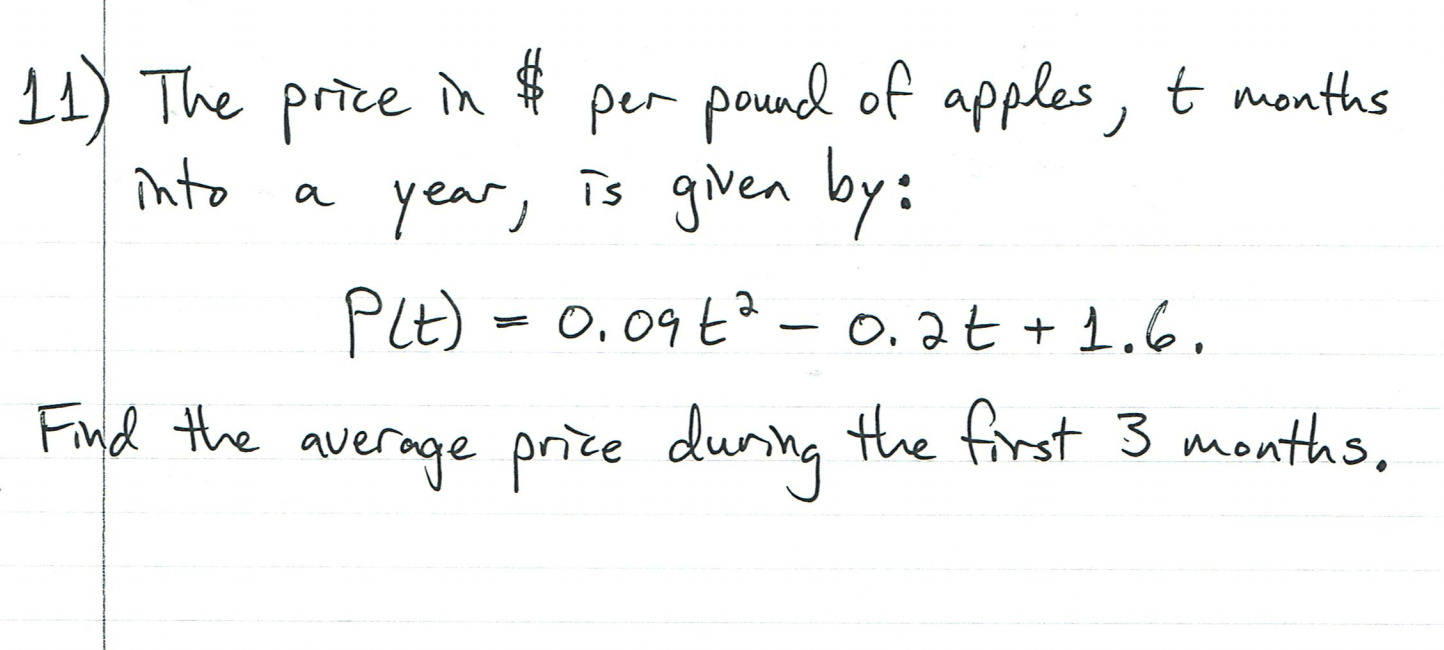 11) The price in $ per pound of apples, t months
into a year, is given by:
P(t) = 0.09t² - 0.2t + 1.6.
Find the average price during the first 3 months.